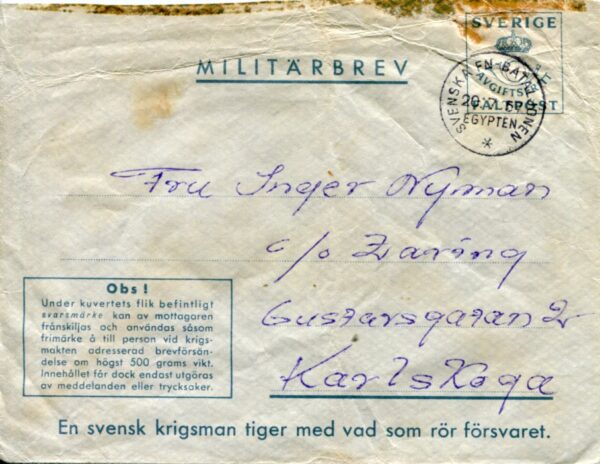 MILITÄRBREV
SVERIGE
AVGIFTSFRITT
FÄLTPOST
SVENSKA FN-BATALJONEN
EGYPTEN
Fru Inger Nyman
c/o Zaring
Gustavsgatan 2
Karlskoga
Obs !
Under kuvertets flik befintligt
svarsmärke kan av mottagaren
frånskiljas och användas såsom
frimärke å till person vid krigs-
makten adresserad brevförsän-
delse om högst 500 grams vikt.
Innehållet får dock endast utgöras
av meddelanden eller trycksaker.
En svensk krigsman tiger med vad som rör försvaret.